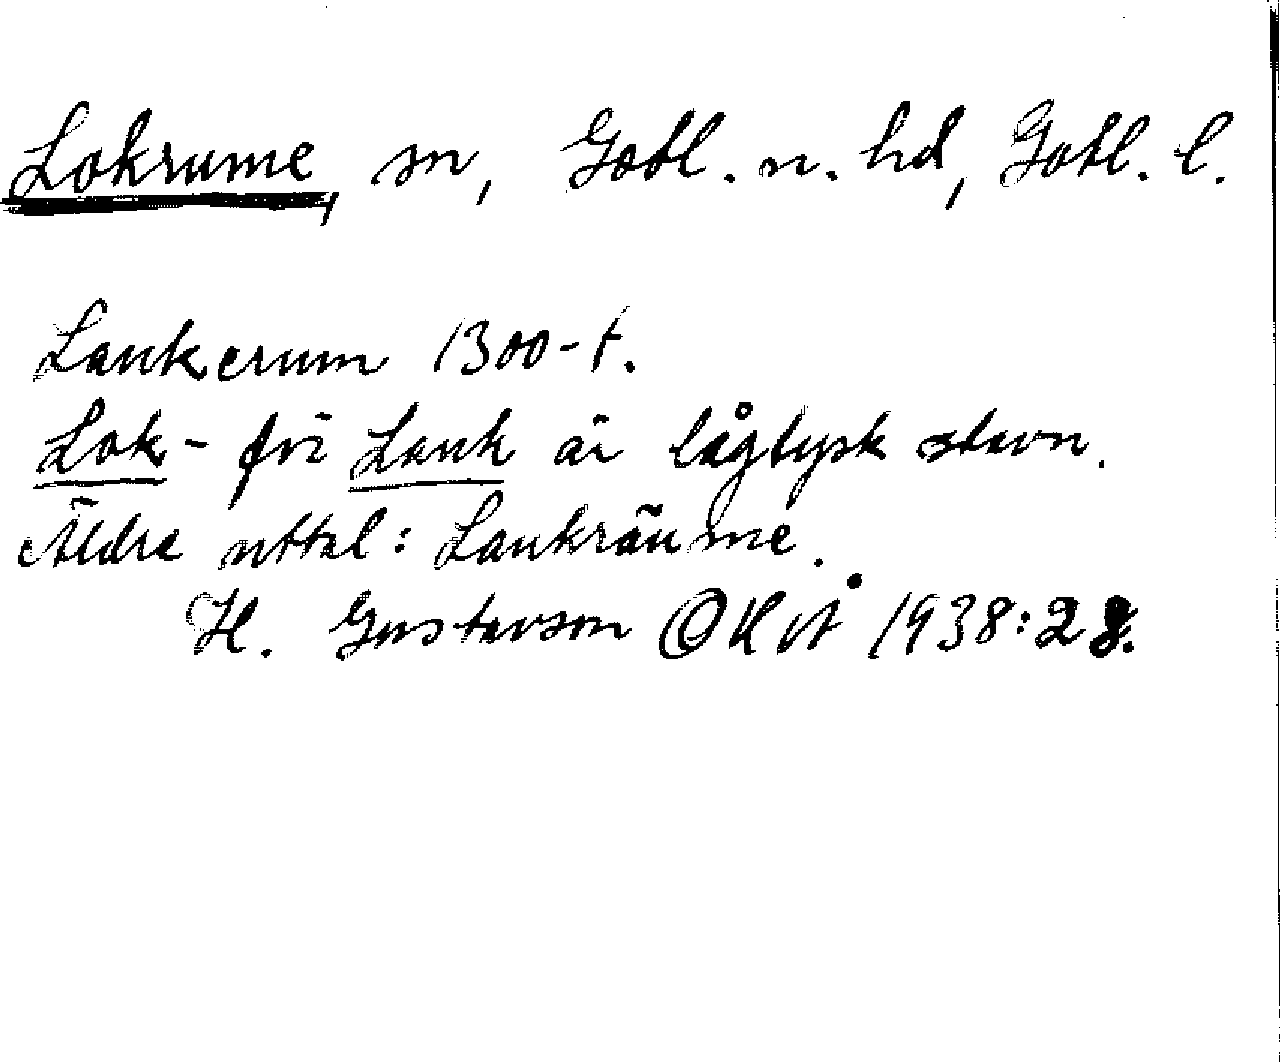 Lokrume, sn, Gotl. n. hd, Gotl. l.
Laukerum 1300-t.
Lok- för Lauk är lågtysk stavn.
Äldre uttal: Laukräume.
H. Gustavson OKVÅ 1938:28.